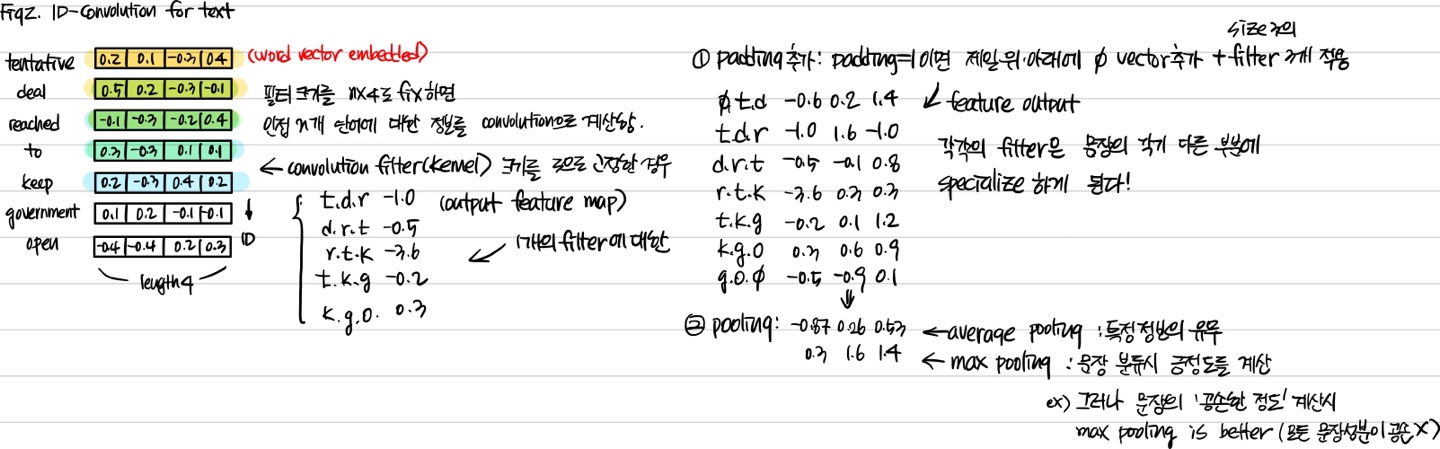 Fig2. 1D-Convolution for text
tentative 0.2 0.1 -0.3 0.4 (word vector embedded)
deal 0.5 0.2 -0.3 -0.1
reached -0.1 -0.3 -0.2 0.4
to 0.3 -0.3 0.1 0.1
keep 0.2 -0.3 0.4 0.2
government 0.1 0.2 -0.1 -0.1
open -0.4 -0.4 0.2 0.3
1D
length 4
필터 크기를 nx4로 fix하면
인접 n개 단어에 대한 정보를 convolution으로 계산함.
← convolution filter(kernel) 크기를 3으로 고정한 경우
t.d.r -1.0 (output feature map)
d.r.t -0.5
r.t.k -3.6
t.k.g -0.2
k.g.o. 0.3
1개의 filter에 대한
size 3의
① padding 추가: padding=1이면 제일 위·아래에 ∅ vector 추가 + filter 3개 적용
∅.t.d -0.6 0.2 1.4
t.d.r -1.0 1.6 -1.0
d.r.t -0.5 -0.1 0.8
r.t.k -3.6 0.3 0.3
t.k.g -0.2 0.1 1.2
k.g.o 0.3 0.6 0.9
g.o.∅ -0.5 -0.9 0.1
↙ feature output
각각의 filter은 문장의 각기 다른 부분에
specialize 하게 된다!
② pooling: -0.87 0.26 0.53 ← average pooling : 특정 정보의 유무
0.3 1.6 1.4 ← max pooling : 문장 분류시 긍정도를 계산
ex) 그러나 문장의 '공손한 정도' 계산시
max pooling is better (모든 문장성분이 공손 X)